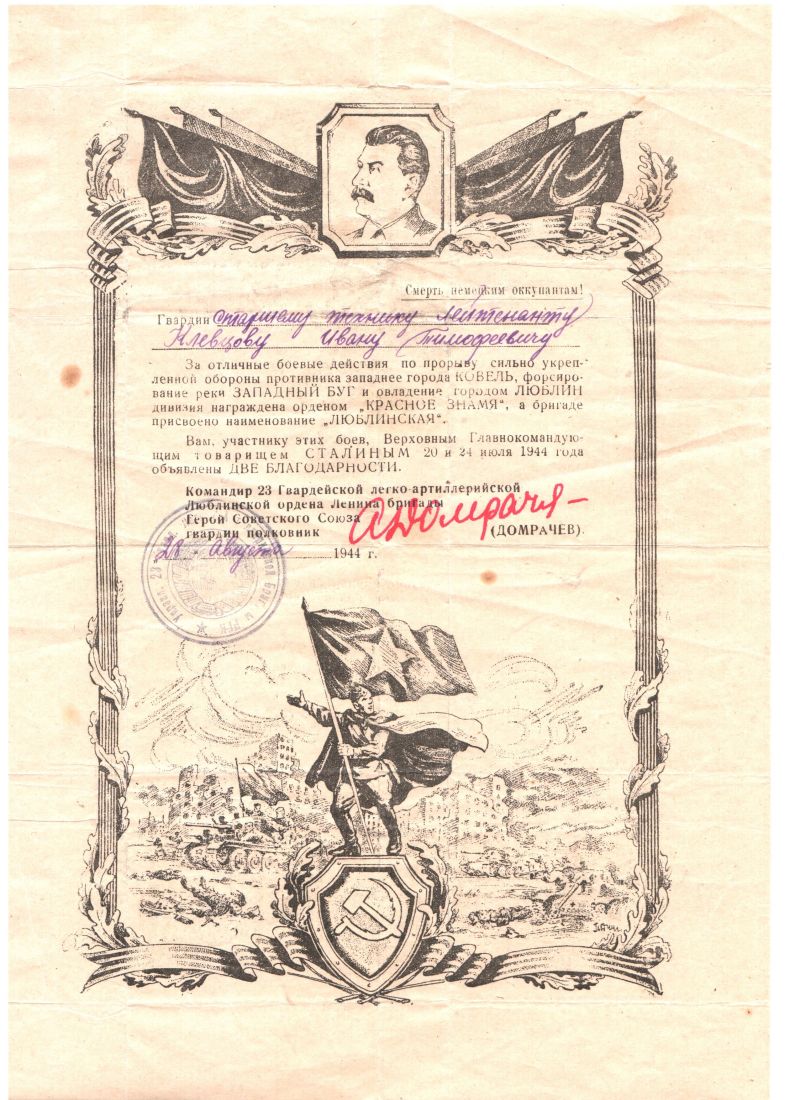 Смерть немецким оккупантам!
Гвардии старшему технику лейтенанту
Клевцову Ивану Тимофеевичу
За отличные боевые действия по прорыву сильно укреп-
ленной обороны противника западнее города КОВЕЛЬ, форсиро-
вание реки ЗАПАДНЫЙ БУГ и овладение городом ЛЮБЛИН
дивизия награждена орденом „КРАСНОЕ ЗНАМЯ“, а бригаде
присвоено наименование „ЛЮБЛИНСКАЯ“.
Вам, участнику этих боев, Верховным Главнокомандую-
щим товарищем СТАЛИНЫМ 20 и 24 июля 1944 года
объявлены ДВЕ БЛАГОДАРНОСТИ.
Командир 23 Гвардейской легко-артиллерийской
Люблинской ордена Ленина бригады
Герой Советского Союза
гвардии полковник АДомрачев (ДОМРАЧЕВ).
28 Августа 1944 г.